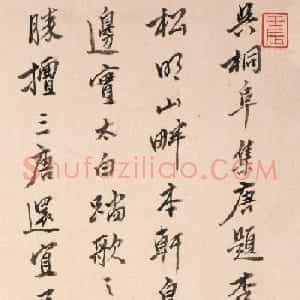 吴桐阜集唐題李
松明山畔本軒皇
邊實太白踏歌之
勝擅三唐還宜
Shufaziliao.com